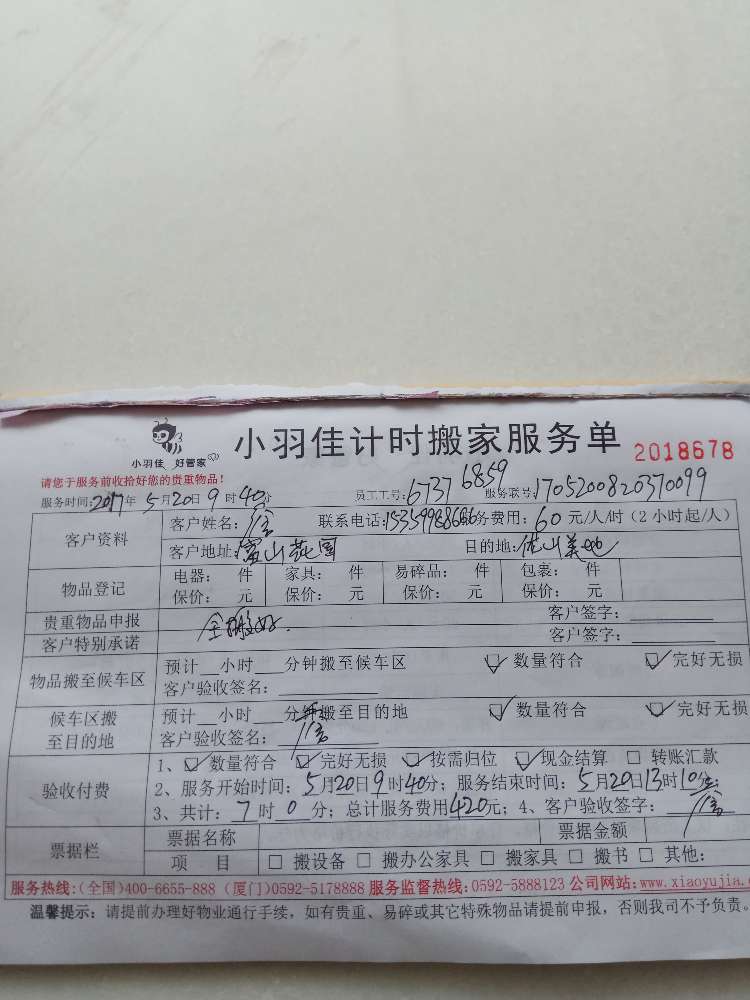 小羽佳 好管家
小羽佳计时搬家服务单 2018678
请您于服务前收拾好您的贵重物品！
服务时间：2017年5月20日9时40分 员工工号：6737 6859 服务联号：1705200820370099
客户资料 客户姓名： 联系电话： 服务费用：60元/人/时（2小时起/人）
客户地址：富山花园 目的地：佳山美地
物品登记 电器： 件 家具： 件 易碎品： 件 包裹： 件
保价： 元 保价： 元 保价： 元 保价： 元
贵重物品申报 客户签字：
客户特别承诺 客户签字：
物品搬至候车区 预计 小时 分钟搬至候车区 数量符合 完好无损
客户验收签名：
候车区搬至目的地 预计 小时 分钟搬至目的地 数量符合 完好无损
客户验收签名：
验收付费 1、数量符合 完好无损 按需归位 现金结算 转账汇款
2、服务开始时间：5月20日9时40分；服务结束时间：5月20日13时10分；
3、共计：7时0分；总计服务费用420元；4、客户验收签字：
票据栏 票据名称 票据金额
项 目 搬设备 搬办公家具 搬家具 搬书 其他：
服务热线：(全国)400-6655-888 (厦门)0592-5178888 服务监督热线：0592-5888123 公司网站：www.xiaoyujia.
温馨提示：请提前办理好物业通行手续，如有贵重、易碎或其它特殊物品请提前申报，否则我司不予负责。